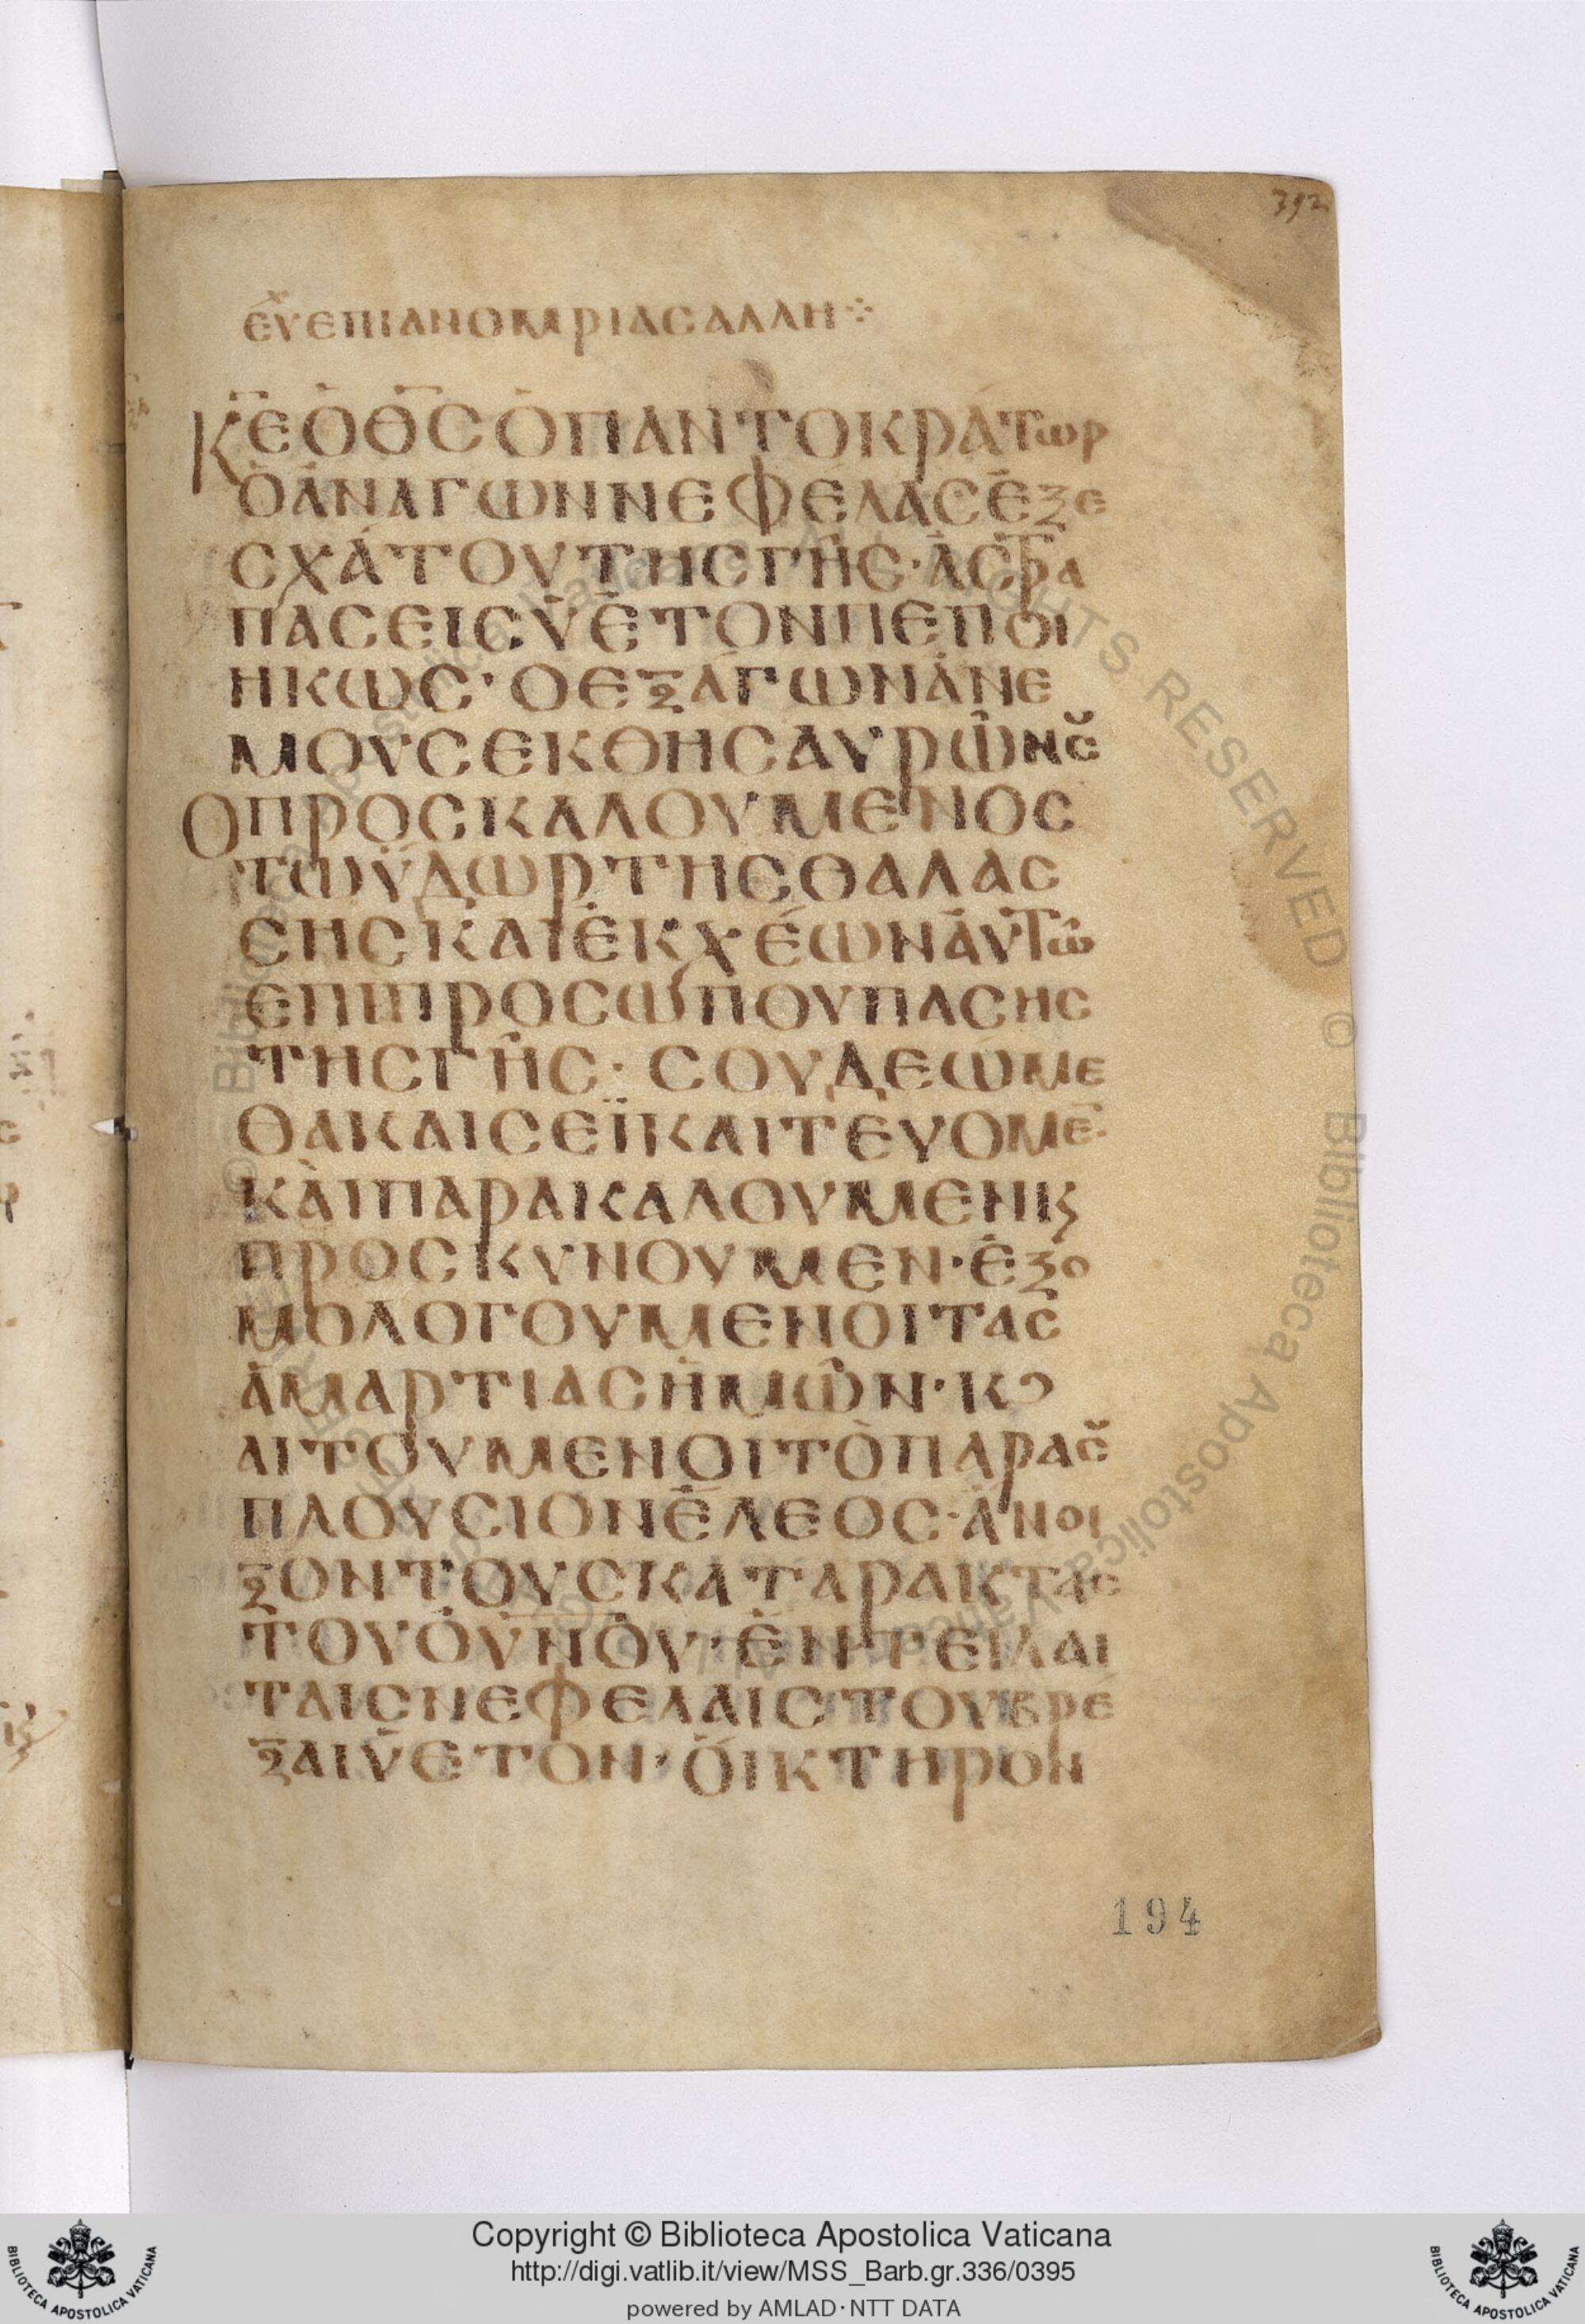 392
εὐχ ΕΠΙΑΝΟΜΡΙΑϹΑΛΛΗ⁘
Κ̅Ε̅ΟΘ̅Ϲ̅ὉΠΑΝΤΟΚΡΆΤωρ
ὉἈΝΑΓΩΝΝΕΦΈΛΑϹἘξε
ϹΧΆΤΟΥΤΗϹΓῆϹ·ἈϹΤρα
ΠΑϹΕΙϹὙΕΤΟΝΠΕΠΟΙ
ΗΚΩϹ·ΟΕΞΆΓΩΝἈΝΕ
ΜΟΥϹΕΚΘΗϹΑΥΡῶΝϹ̆
ΟΠΡΟϹΚΑΛΟΥΜΕΝΟϹ
ΤΩΫΔΩΡΤΗϹΘΑΛΑϹ
ϹΗϹΚΑΙἘΚΧΈΩΝἀΥΤῶ
ΕΠΙΠΡΟϹΏΠΟΥΠΑϹΗϹ
ΤΗϹΓῆϹ·ϹΟΥΔΕΩΜΕ
ΘΑΚΑΙϹΕΪΚΑΙΤΕΥΟΜΕ̅·
ΚΑΙΠΑΡΑΚΑΛΟΥΜΕΝΚϛ
ΠΡΟϹΚΥΝΟΥΜΕΝ·ἘΞΟ
ΜΟΛΟΓΟΥΜΕΝΟΙΤΑϹ
ἉΜΑΡΤΙΑϹἩΜῶΝ·ΚϽ
ΑΙΤΟΥΜΕΝΟΙΤῸΠΑΡΑϹ̆
ΠΛΟΥϹΙΟΝἜΛΕΟϹ·ἌΝΟΙ
ΞΟΝΤΟΥϹΚΑΤΑΡΑΚΤΑϹ
ΤΟΥΟΥ̅Ν̅Ο̅Υ·ἜΝΤΕΙΛΑΙ
ΤΑΙϹΝΕΦΕΛΑΙϹΤΟΥΒΡΕ
ΞΑΙὙΕΤΟΝ·ΟἴΚΤΗΡΟΝ
194
© Biblioteca Apostolica Vaticana ALL RIGHTS RESERVED © Biblioteca Apostolica Vaticana ALL RIGHTS RESERVED
Copyright © Biblioteca Apostolica Vaticana
http://digi.vatlib.it/view/MSS_Barb.gr.336/0395
powered by AMLAD·NTT DATA
BIBLIOTECA APOSTOLICA VATICANA
BIBLIOTECA APOSTOLICA VATICANA